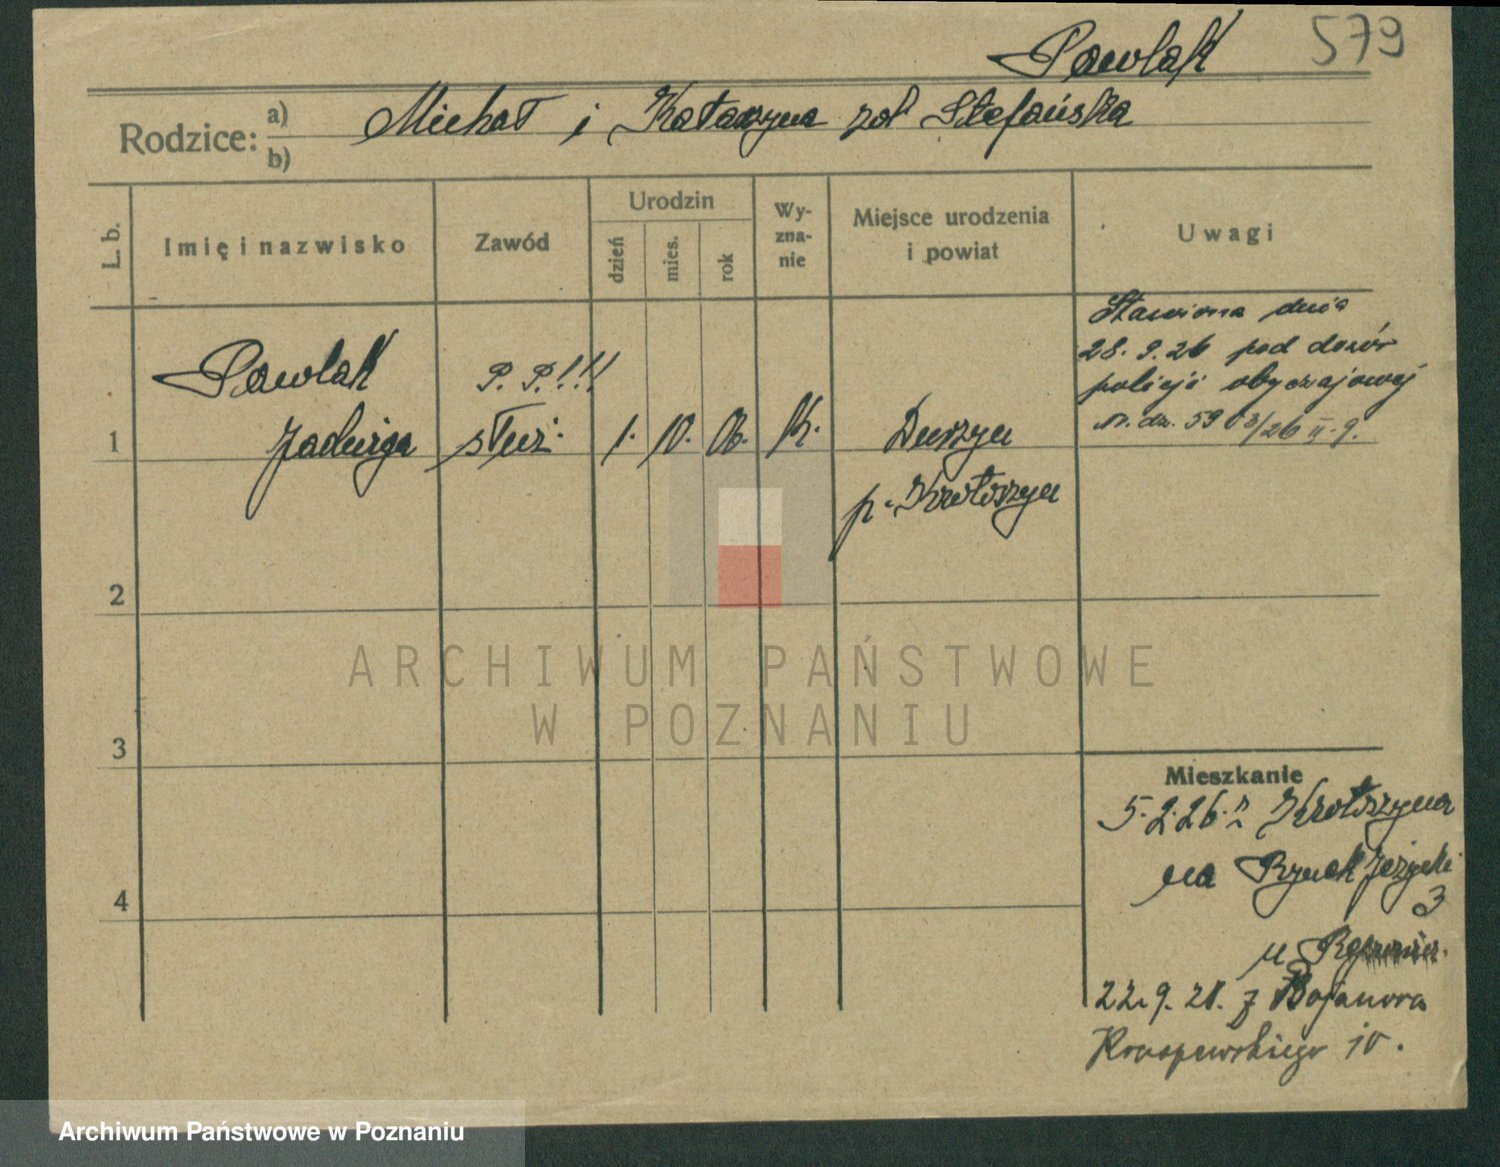 Pawlak 579
Rodzice: a) Michał i Katarzyna zd Stefańska
b)
L. b.
Imię i nazwisko
Zawód
Urodzin
dzień
mies.
rok
Wy-
zna-
nie
Miejsce urodzenia
i powiat
Uwagi
Stawiona dnia
28. 9. 26 pod dozór
policji obyczajowej
Pawlak P. P.!!!
1 Jadwiga służ. 1. 10. 06. K.
p. Krotoszyn
2
3
4
Mieszkanie
5.2.26. z Krotoszyna
na Rynek Jeżycki
3
u
22.9.28. z Bojanowa
10.
ARCHIWUM PAŃSTWOWE
W POZNANIU
Archiwum Państwowe w Poznaniu